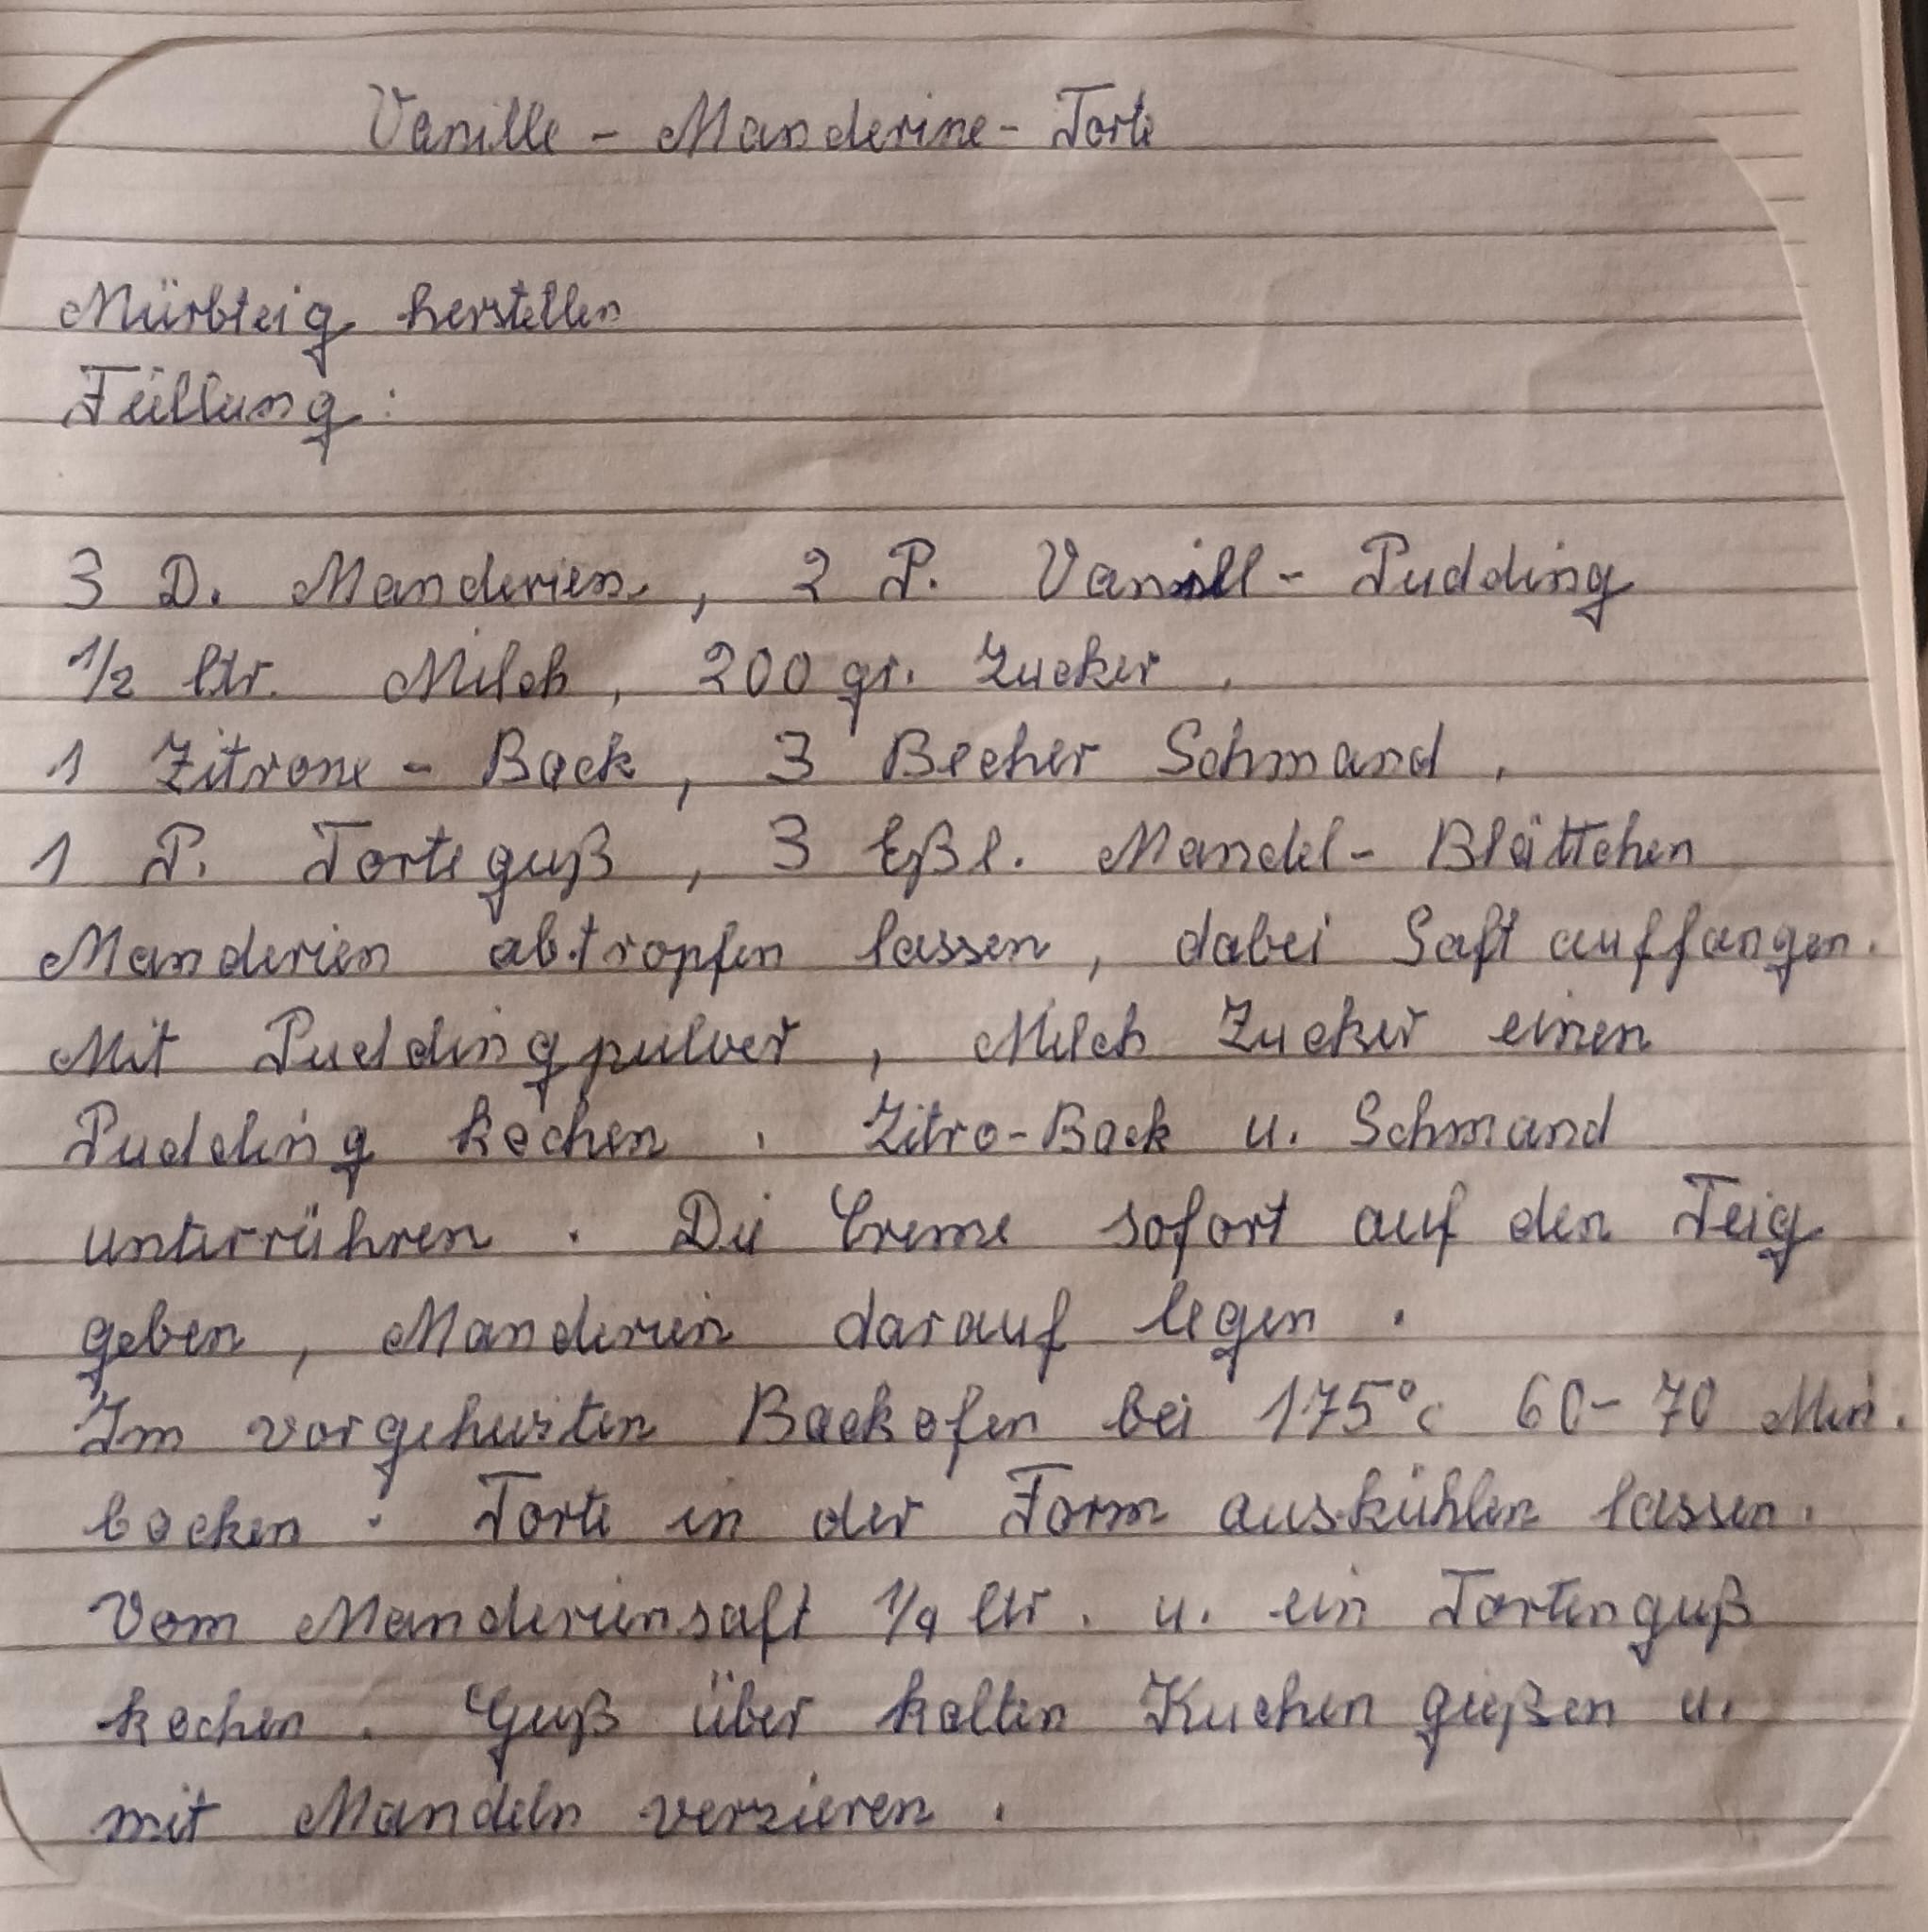 Vanille - Manderine - Torte
Mürbteig herstellen
Füllung:
3 D. Manderien, 2 P. Vanill - Pudding
1/2 ltr. Milch, 200 gr. Zucker,
1 Zitrone - Back, 3 Becher Schmand,
1 P. Torteguß, 3 Eßl. Mandel - Blättchen
Manderien abtropfen lassen, dabei Saft auffangen.
Mit Puddingpulver, Milch Zucker einen
Pudding kochen. Zitro-Back u. Schmand
unterrühren. Die Creme sofort auf den Teig
geben, Manderien darauf legen.
Im vorgeheizten Backofen bei 175°c 60 - 70 Min.
backen. Torte in der Form auskühlen lassen.
Vom Manderiensaft 1/4 ltr. u. ein Tortenguß
kochen. Guß über kalten Kuchen gießen u.
mit Mandeln verzieren.